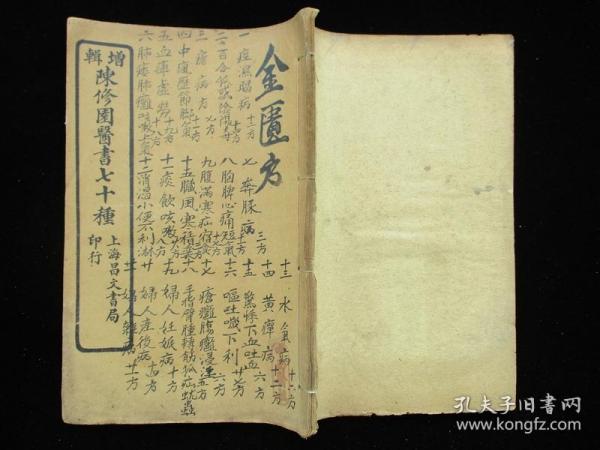 金匱方
一痙濕暍病十三方
二百合狐惑陰陽毒
三瘧病方
四中風歷節
五血痺虛勞九方
六肺痿肺癰咳嗽上氣
七奔豚病三方
八胸脾心痛短氣
九腹滿寒疝宿食
十五臟風寒積聚
十一痰飲咳嗽
十二消渴小便不利淋
十三水氣病
十四黃癉病
十五驚悸下血吐血六方
十六嘔吐噦下利
十七瘡癰腸癰浸淫五方
十八手指臂腫轉筋狐疝蚘蟲
十九婦人妊娠病十方
廿婦人產後病
廿一婦人雜病
增輯陳修園醫書七十種
上海昌文書局印行
孔夫子旧書网
www.kongfz.com